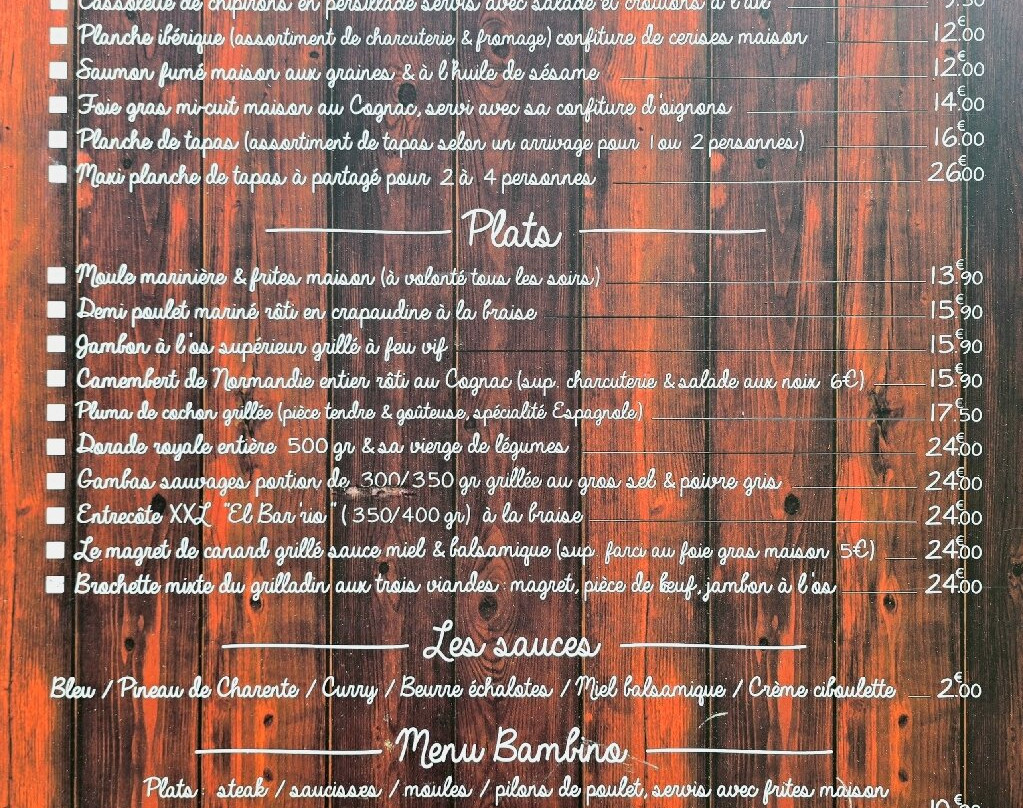 Cassolette de chipirons en persillade servis avec salade et croûtons à l'ail 9.50
Planche ibérique (assortiment de charcuterie & fromage) confiture de cerises maison 12.€00
Saumon fumé maison aux graines & à l'huile de sésame 12.€00
Foie gras mi-cuit maison au Cognac, servi avec sa confiture d'oignons 14.€00
Planche de tapas (assortiment de tapas selon un arrivage pour 1 ou 2 personnes) 16.€00
Maxi planche de tapas à partagé pour 2 à 4 personnes 26.€00
Plats
Moule marinière & frites maison (à volonté tous les soirs) 13.€90
Demi poulet mariné rôti en crapaudine à la braise 15.€90
Jambon à l'os supérieur grillé à feu vif 15.€90
Camembert de Normandie entier rôti au Cognac (sup. charcuterie & salade aux noix 6€) 15.€90
Pluma de cochon grillée (pièce tendre & goûteuse, spécialité Espagnole) 17.€50
Dorade royale entière 500 gr & sa vierge de légumes 24.€00
Gambas sauvages portion de 300/350 gr grillée au gros sel & poivre gris 24.€00
Entrecôte XXL "El Bar'rio" (350/400 gr) à la braise 24.€00
Le magret de canard grillé sauce miel & balsamique (sup. farci au foie gras maison 5€) 24.€00
Brochette mixte du grilladin aux trois viandes : magret, pièce de bœuf, jambon à l'os 24.€00
Les sauces
Bleu / Pineau de Charente / Curry / Beurre échalotes / Miel balsamique / Crème ciboulette 2.€00
Menu Bambino
Plats : steak / saucisses / moules / pilons de poulet, servis avec frites maison